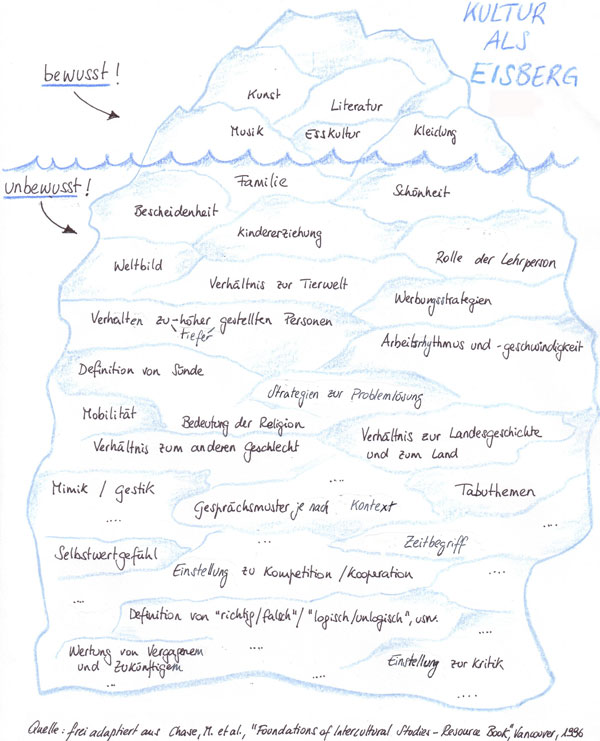 KULTUR
ALS
EISBERG
bewusst!
Kunst
Literatur
Musik
Esskultur
Kleidung
unbewusst!
Familie
Schönheit
Bescheidenheit
Kindererziehung
Rolle der Lehrperson
Weltbild
Verhältnis zur Tierwelt
Werbungsstrategien
Verhalten zu höher gestellten Personen
tiefer
Arbeitsrhythmus und -geschwindigkeit
Definition von Sünde
Strategien zur Problemlösung
Mobilität
Bedeutung der Religion
Verhältnis zur Landesgeschichte
und zum Land
Verhältnis zum anderen Geschlecht
....
Mimik / Gestik
Tabuthemen
....
Gesprächsmuster je nach Kontext
....
...
Zeitbegriff
Selbstwertgefühl
Einstellung zu Kompetition / Kooperation
....
....
Definition von "richtig/falsch" / "logisch/unlogisch", usw.
....
Wertung von Vergangenem
und Zukünftigem
....
Einstellung zur Kritik
...
....
...
Quelle: frei adaptiert aus Chase, M. et al., "Foundations of Intercultural Studies - Resource Book", Vancouver, 1996